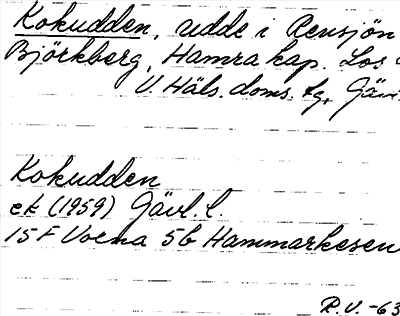 Kokudden, udde i Rensjön
Björkberg, Hamra kap. Los
V. Häls. doms. tg, Gävl.
Kokudden
ek (1959) Gävl. l.
15F Voxna 5b Hammarkesen
R.V. -63